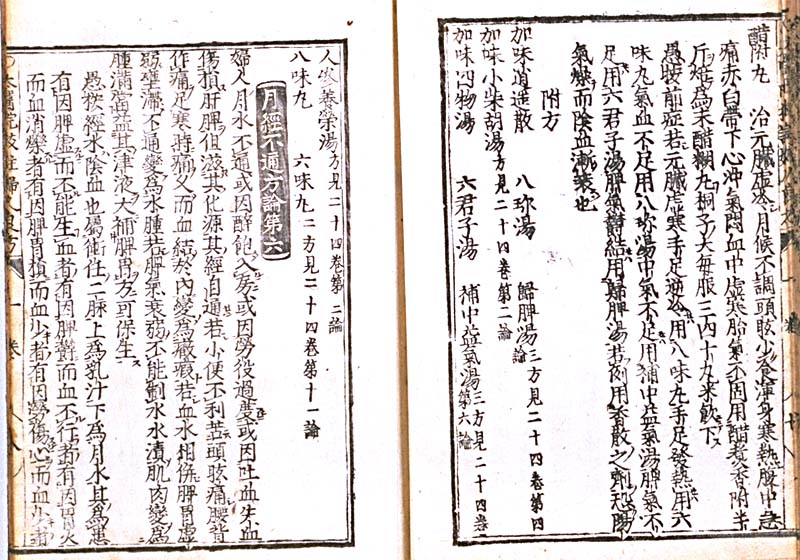 醋附丸 治元臟虛冷月候不調頭眩少食渾身寒熱腹中急
痛赤白帶下心沖氣悶血中虛寒胎氣不固用醋煑香附半
斤焙爲末醋糊丸桐子大每服三四十丸米飲下
愚按前症若元臟虛寒手足逆冷用八味丸手足發熱用六
味丸氣血不足用八珎湯中氣不足用補中益氣湯脾氣不
足用六君子湯脾氣欝結用歸脾湯若例用香散之劑恐陽
氣變而陰血漸衰也
附方
加味逍遥散 八珎湯 歸脾湯三方見二十四卷第四論
加味小柴胡湯方見二十四卷第二論
加味四物湯 六君子湯 補中益氣湯三方見二十四卷第六論
人參養榮湯方見二十四卷第二論
八味丸 六味丸二方見二十四卷第十一論
月經不通方論第六
婦人月水不通或因醉飽入房或因勞役過度或因吐血失血
傷損肝脾但滋其化源其經自通若小便不利苦頭眩痛腰背
作痛足寒時痛又而血結於內變爲癥瘕若血水相倂脾胃虛
弱壅滯不通變爲水腫若脾氣衰弱不能制水水漬肌肉變爲
腫滿當益其津液大補脾胃方可保生
愚按經水陰血也屬衝任二脉上爲乳汁下爲月水其爲患
有因脾虛而不能生血者有因脾欝而血不行者有因胃火
而血消爍者有因脾胃損而血少者有因勞傷心而血少者